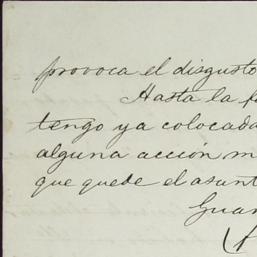 provoca el disgusto
Hasta la
tengo ya colocada
alguna acción
que quede el